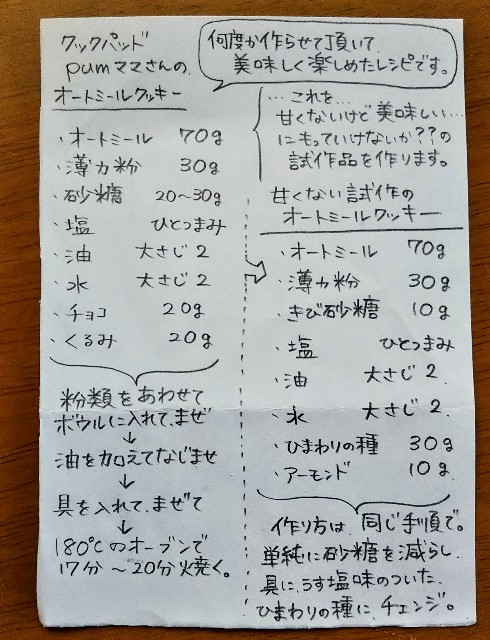 クックパッド
pumママさんの、
オートミールクッキー
・オートミール 70g
・薄力粉 30g
・砂糖 20〜30g
・塩 ひとつまみ
・油 大さじ2
・水 大さじ2
・チョコ 20g
・くるみ 20g
粉類をあわせて
ボウルに入れて、まぜ
↓
油を加えてなじませ
↓
具を入れて、まぜて
↓
180℃のオーブンで
17分〜20分焼く。
何度か作らせて頂いて、
美味しく楽しめたレシピです。
…これを…
甘くないけど美味しい…
にもっていけないか??の
試作品を作ります。
甘くない試作の
オートミールクッキー
・オートミール 70g
・薄力粉 30g
・きび砂糖 10g
・塩 ひとつまみ
・油 大さじ2
・水 大さじ2
・ひまわりの種 30g
・アーモンド 10g
作り方は、同じ手順で。
単純に砂糖を減らし、
具に、うす塩味のついた、
ひまわりの種に、チェンジ。